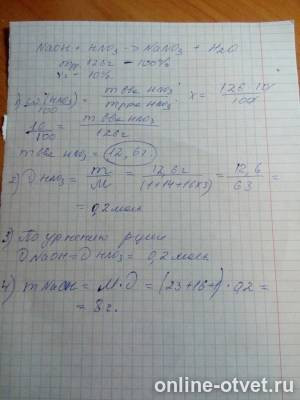 NaOH + HNO₃ → NaNO₃ + H₂O
mрр. 126г - 100%
- 10%
1) ω(HNO₃)/100 = m вва HNO₃ / m рра HNO₃ x = 126·10/100
10/100 = m вва HNO₃ / 126г
m вва HNO₃ = 12,6г.
2) ν HNO₃ = m/M = 12,6г/(1+14+16×3) = 12,6/63 =
= 0,2 моль
3) По ур-нению р-ции
ν NaOH = ν HNO₃ = 0,2 моль
4) m NaOH = M·ν = (23+16+1)·0,2 =
= 8г.
online-otvet.ru